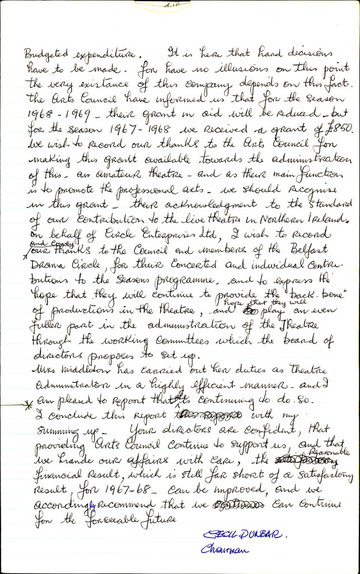 Budgeted expenditure. It is here that hard decisions
have to be made. for have no illusions on this point
the very existence of this company depends on this fact.
The Arts Council have informed us that for the Season
1968-1969 - their grant in aid will be reduced - but
for the season 1967-1968 we received a grant of £850.
We wish to record our thanks to the Arts Council for
making this grant available towards the administration
of this - an amateur theatre - and as their main function
is to promote the professional arts - we should recognise
in this grant - their acknowledgment to the Standard
of our contribution to the live theatre in Northern Ireland.
on behalf of Circle Enterprises Ltd, I wish to record
and convey
our thanks to the Council and members of the Belfast
Drama Circle, for their concerted and individual contri-
butions to the Seasons programme. and to express the
hope that they will continue to provide the "back-bone"
hope that they will
of productions in the theatre, and play an even
fuller part in the administration of the Theatre
through the working Committees which the board of
directors proposes to set up.
Mrs Middleton has carried out her duties as Theatre
Administrator in a highly efficient manner. and I
am pleased to report that continuing to do so.
I conclude this report with my
summing up - Your directors are confident, that
providing Arts Council continue to support us, and that
we handle our affairs with care, the
reasonable
financial result, which is still far short of a satisfactory
result, for 1967-68 - can be improved, and we
accordingly recommend that we can continue
for the foreseeable future
CECIL DUNBAR.
Chairman